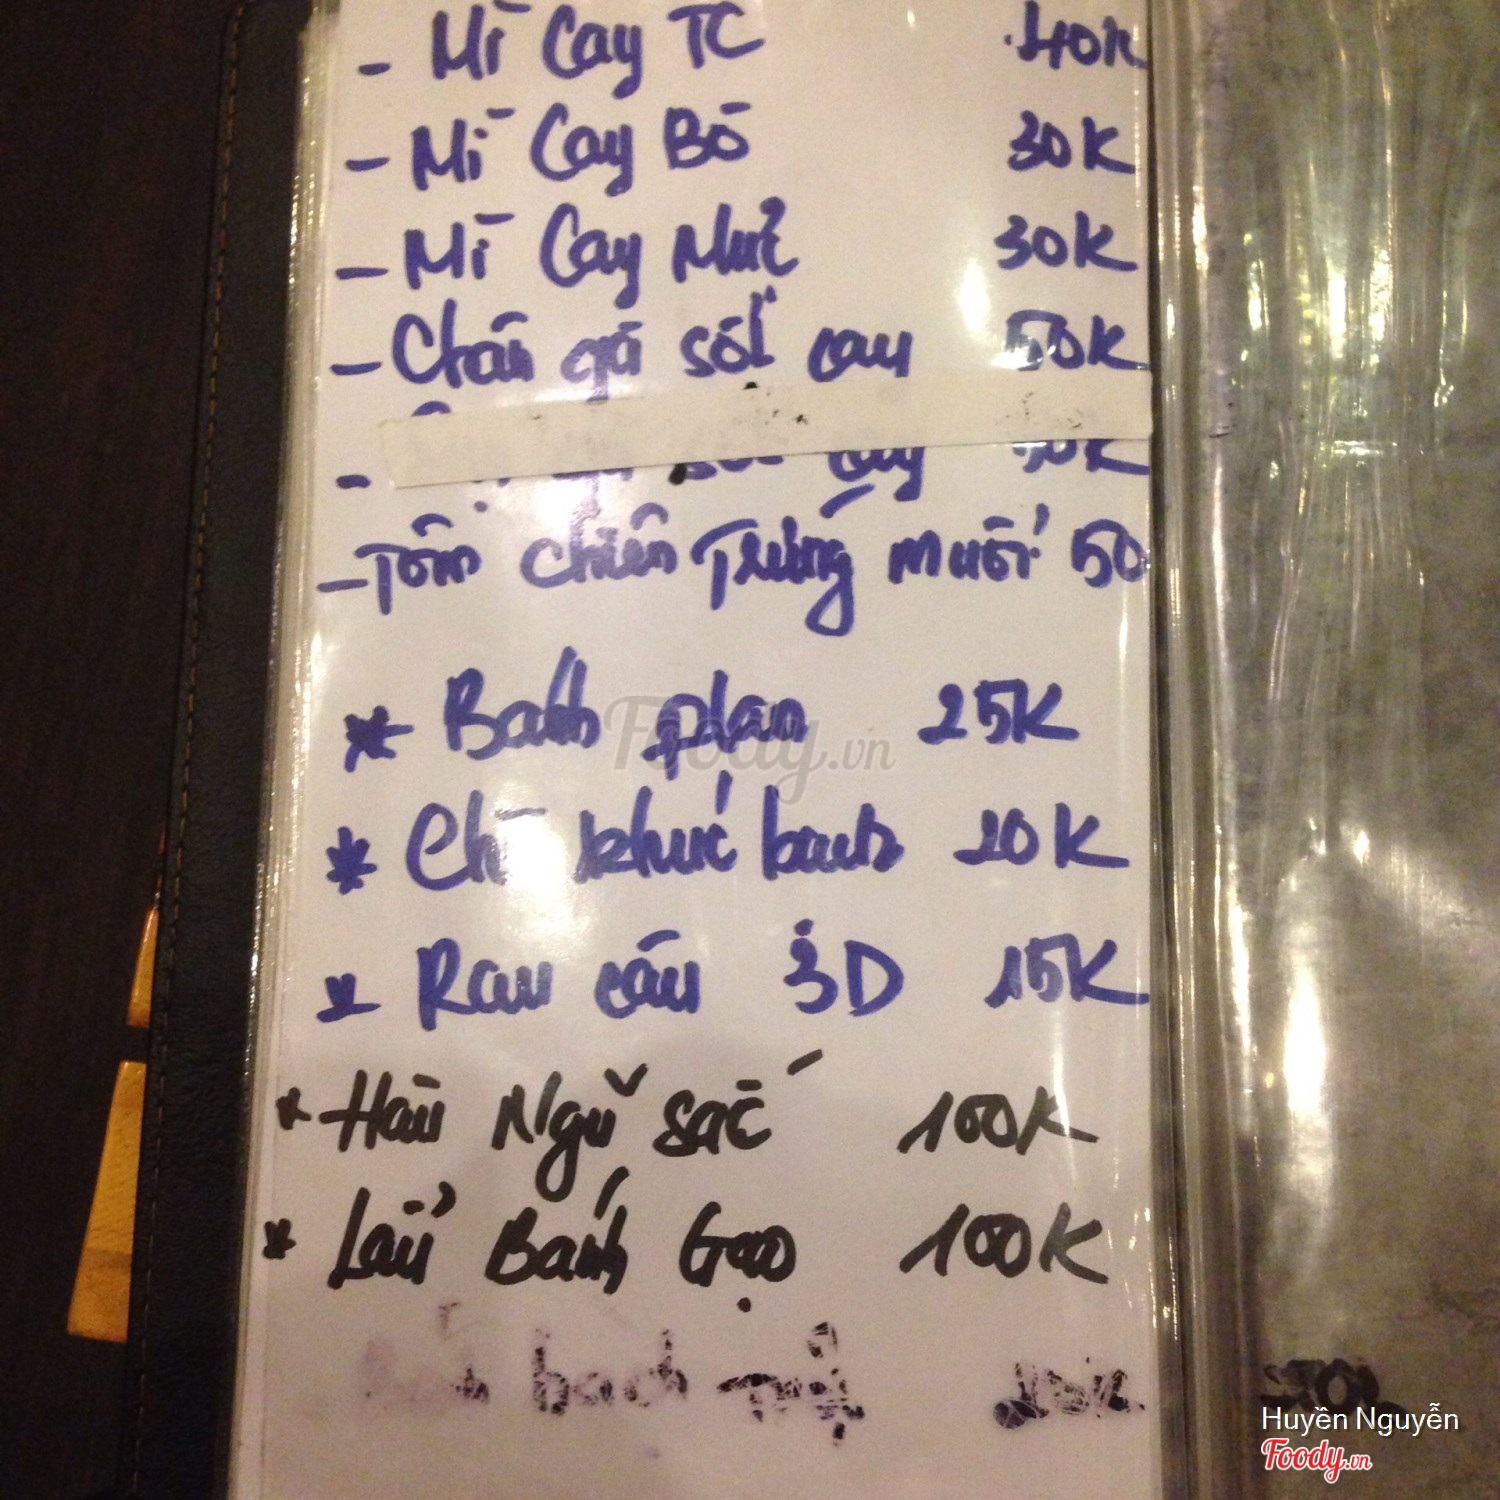 - Mì Cay TC 40K
- Mì Cay Bò 30K
- Mì Cay Mực 30K
- Chân gà sốt cay 50K
- cay
- Tôm chiên Trứng muối 50
* Bánh plan 25K
* Chè khúc bạch 20K
* Rau câu 3D 15K
* Hàu Ngũ sắc 100K
* Lẩu Bánh Gạo 100K
bạch
Foody.vn
Huyền Nguyễn
Foody.vn